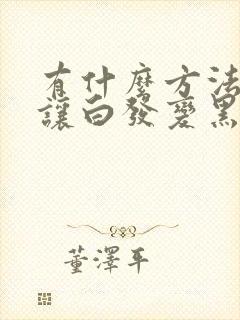 有什麼方法
讓白發變黑
董澤平